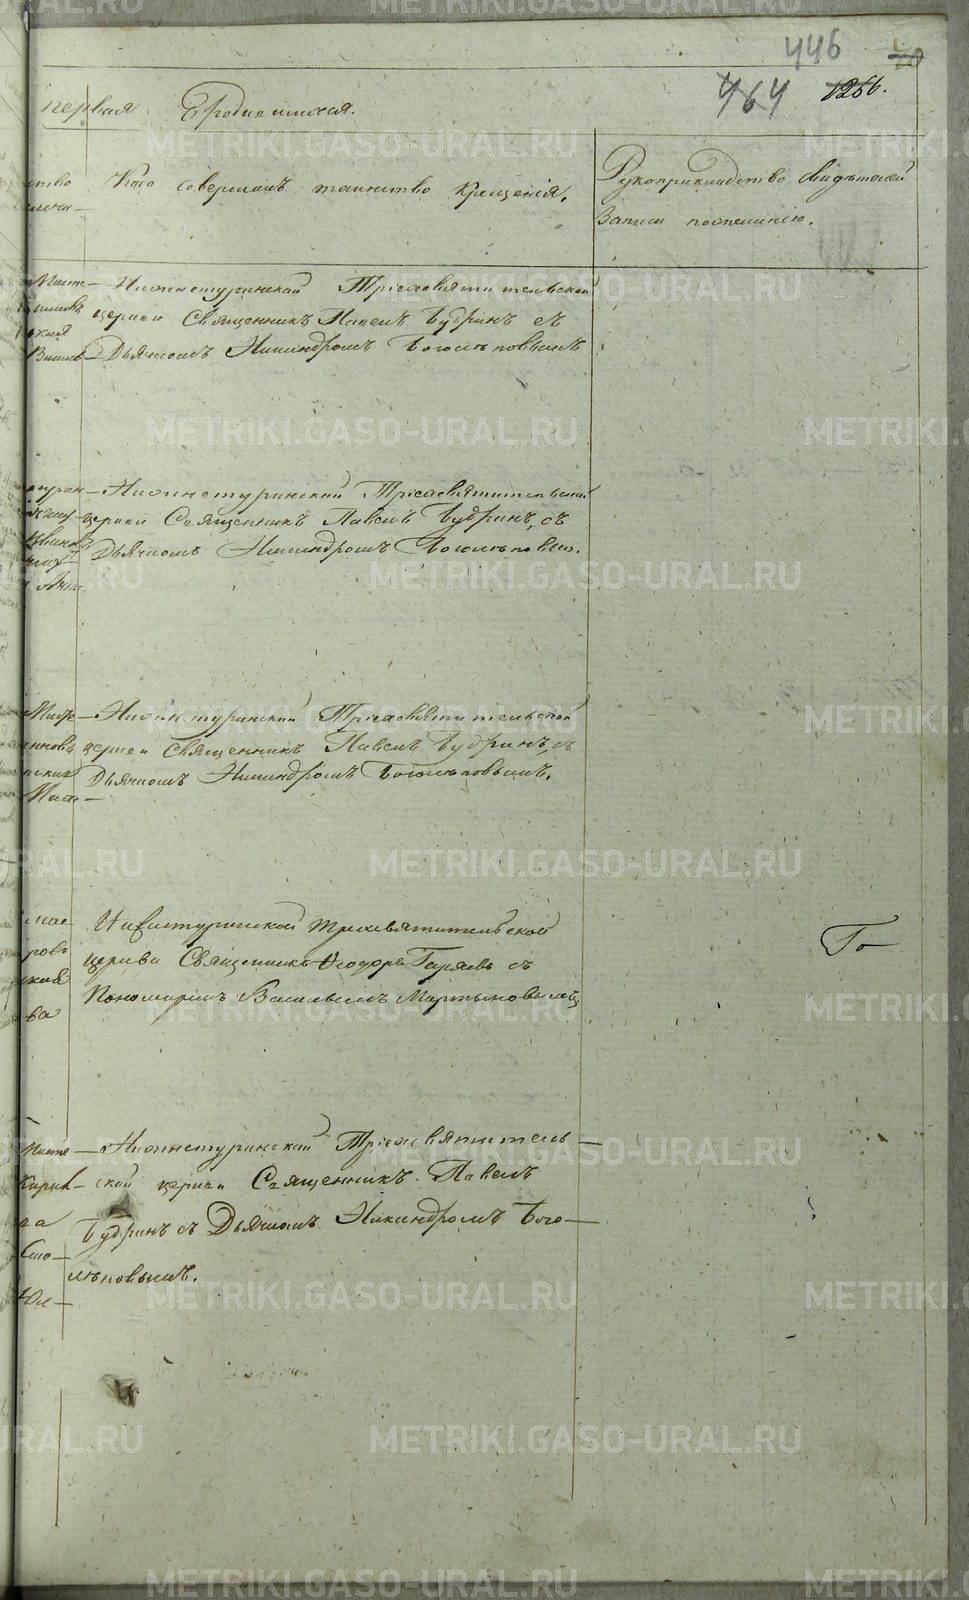 446
464 1266.
первая О родившихся.
Кто совершалъ таинство крещенія.
Рукоприкладство свидѣтелей
записи по желанію.
Нижнетуринской Трiехсвятительской
церкви Священникъ Павелъ Будринъ съ
Дьячкомъ Никандромъ Боголѣповымъ
Нижнетуринской Трiехсвятительской
церкви Священникъ Павелъ Будринъ, съ
Дьячкомъ Никандромъ Боголѣповым.
Нижнетуринской Трiехсвятительской
церкви Священникъ Павелъ Будринъ, съ
Дьячкомъ Никандромъ Боголѣповымъ.
Нижнетуринской Трехсвятительской
церкви Священникъ Ѳеодоръ Гаряевъ съ
Пономаремъ Васильемъ Мартыновымъ
Го-
Нижнетуринской Трiехсвятитель-
ской церкви Священникъ Павелъ
Будринъ съ Дьячкомъ Никандромъ Бого-
лѣповымъ.
METRIKI.GASO-URAL.RU